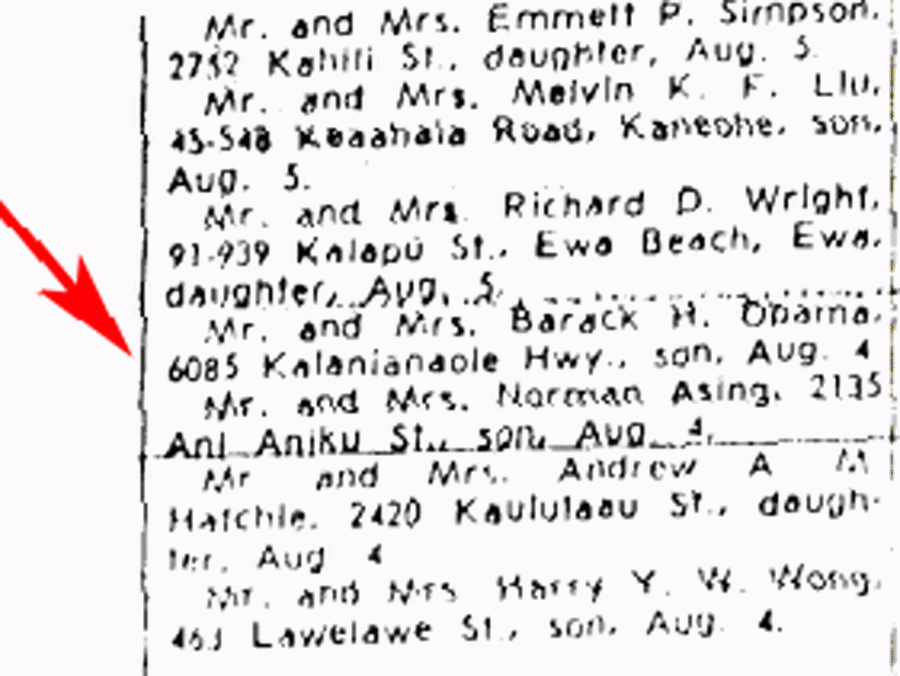 Mr. and Mrs. Emmett P. Simpson,
2752 Kahili St., daughter, Aug. 5.
Mr. and Mrs. Melvin K. F. Liu,
45-548 Keaahala Road, Kaneohe, son,
Aug. 5.
Mr. and Mrs. Richard D. Wright,
91-939 Kalapu St., Ewa Beach, Ewa,
daughter, Aug. 5.
Mr. and Mrs. Barack H. Obama,
6085 Kalanianaole Hwy., son, Aug. 4
Mr. and Mrs. Norman Asing, 2135
Ani Aniku St., son, Aug. 4.
Mr and Mrs. Andrew A M
Hatchie, 2420 Kaululaau St., daugh-
ter, Aug 4
Mr. and Mrs Harry Y. W. Wong,
Lawelawe St., son, Aug. 4.